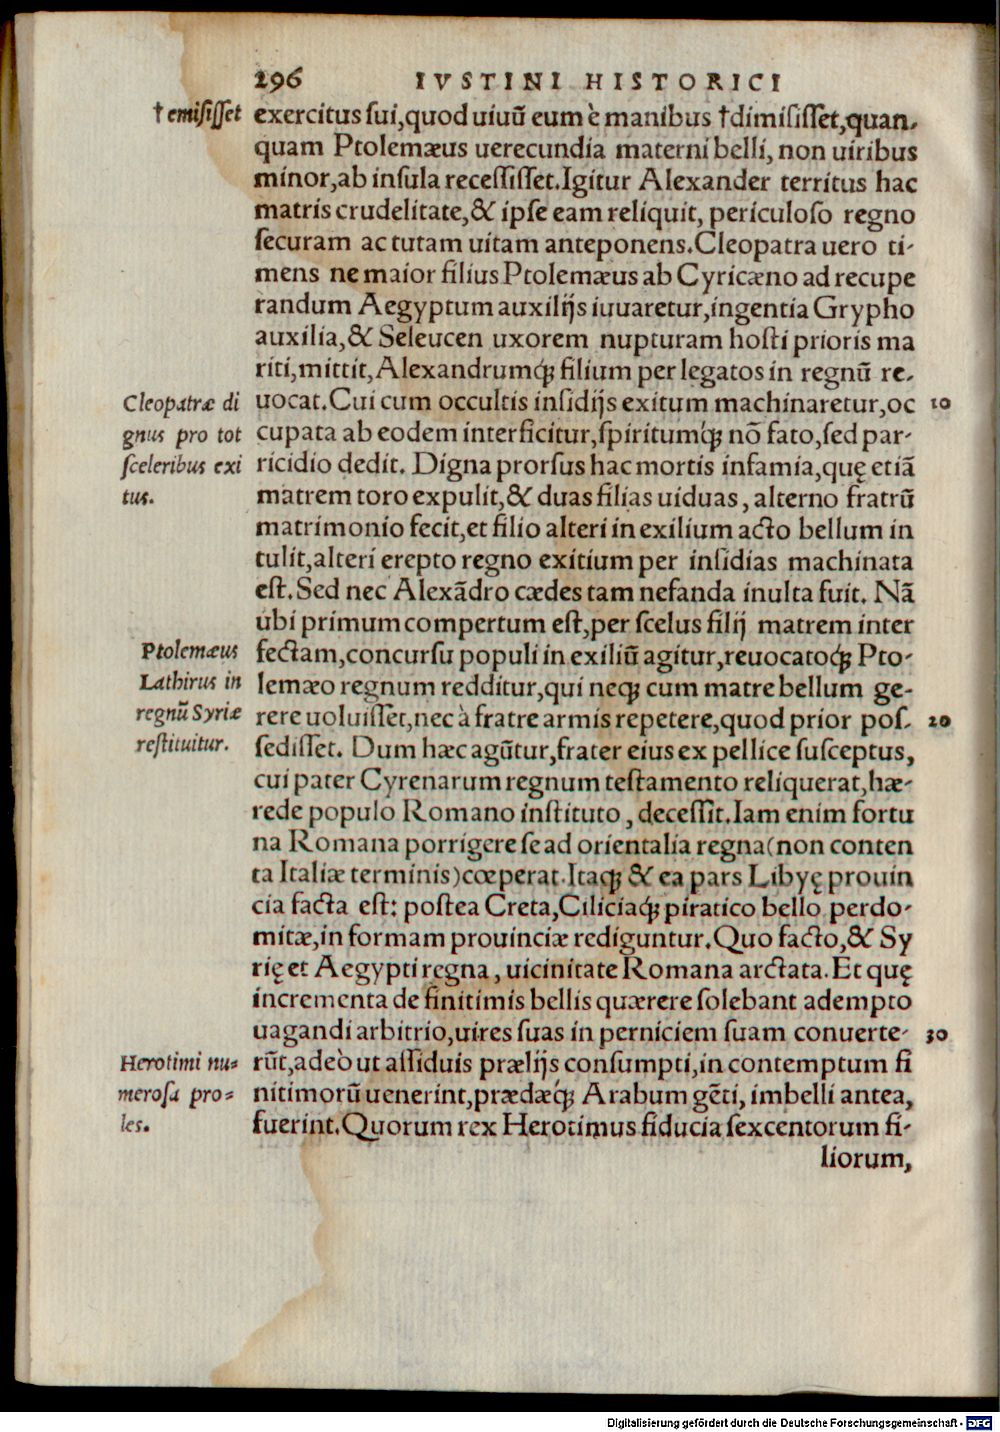 296 IVSTINI HISTORICI
† emisisset
exercitus sui,quod uiuũ eum è manibus †dimisisset,quan-
quam Ptolemæus uerecundia materni belli, non uiribus
minor,ab insula recessisset.Igitur Alexander territus hac
matris crudelitate,& ipse eam reliquit, periculoso regno
securam ac tutam uitam anteponens.Cleopatra uero ti-
mens ne maior filius Ptolemæus ab Cyricæno ad recupe
randum Aegyptum auxilijs iuuaretur,ingentia Grypho
auxilia,& Seleucen uxorem nupturam hosti prioris ma
riti,mittit,Alexandrumq́; filium per legatos in regnũ re-
uocat.Cui cum occultis insidijs exitum machinaretur,oc 10
cupata ab eodem interficitur,spiritumq́; nõ fato,sed par-
ricidio dedit. Digna prorsus hac mortis infamia,quę etiã
matrem toro expulit,& duas filias uiduas, alterno fratrũ
matrimonio fecit,et filio alteri in exilium acto bellum in
tulit,alteri erepto regno exitium per insidias machinata
est.Sed nec Alexãdro cædes tam nefanda inulta fuit. Nã
ubi primum compertum est,per scelus filij matrem inter
fectam,concursu populi in exiliũ agitur,reuocatoq́; Pto-
lemæo regnum redditur,qui neq; cum matre bellum ge-
rere uoluisset,nec à fratre armis repetere,quod prior pos- 20
sedisset. Dum hæc agũtur,frater eius ex pellice susceptus,
cui pater Cyrenarum regnum testamento reliquerat,hæ-
rede populo Romano instituto, decessit.Iam enim fortu
na Romana porrigere se ad orientalia regna(non conten
ta Italiæ terminis)cœperat.Itaq; & ea pars Libyę prouin
cia facta est: postea Creta,Ciliciaq́; piratico bello perdo-
mitæ,in formam prouinciæ rediguntur.Quo facto,& Sy
rię et Aegypti regna, uicinitate Romana arctata.Et quę
incrementa de finitimis bellis quærere solebant adempto
uagandi arbitrio,uires suas in perniciem suam conuerte- 30
rũt,adeò ut assiduis prælijs consumpti,in contemptum fi
nitimorũ uenerint,prædæq́; Arabum gẽti, imbelli antea,
fuerint.Quorum rex Herotimus fiducia sexcentorum fi-
liorum,
Cleopatræ di
gnus pro tot
sceleribus exi
tus.
Ptolemæus
Lathirus in
regnũ Syriæ
restituitur.
Herotimi nu-
merosa pro-
les.
Digitalisierung gefördert durch die Deutsche Forschungsgemeinschaft - DFG